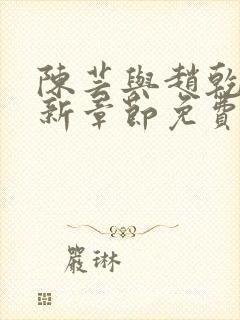 陳芸與趙乾
新章節免費
嚴琳